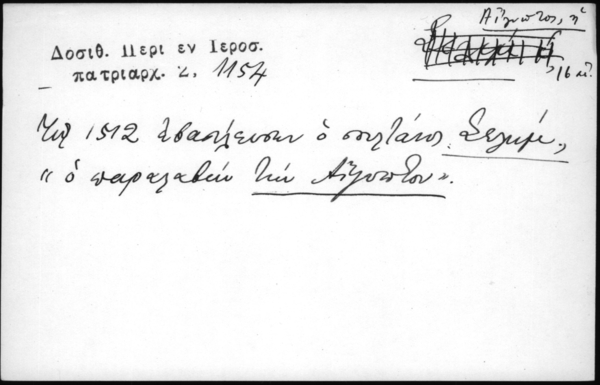 Αἴγυπτος, ἡ
16 αἰ.
Δοσιθ. Περι εν Ιεροσ.
πατριαρχ. Σ. 1154
Τῷ 1512 ἐβασίλευσεν ὁ σουλτάνος Σελήμ,
« ὁ παραλαβὼν τὴν Αἴγυπτον ».